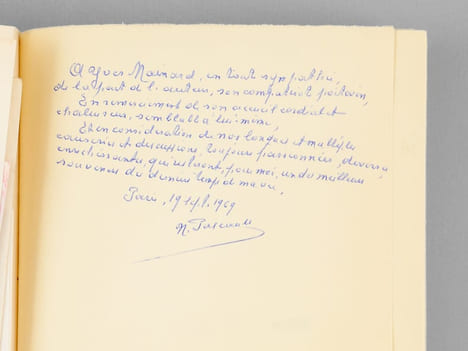 A Yves Mainard, en toute sympathie,
de la part de l'auteur, son compatriote poitevin,
En remerciement de son accueil cordial et
chaleureux, semblable à lui-même,
Et en considération de nos longues et multiples
causeries et discussions, toujours passionnées, diverses
enrichissantes, qui restent, pour moi, un des meilleurs
souvenirs du dernier temps de ma vie,
Paris, 19 1969